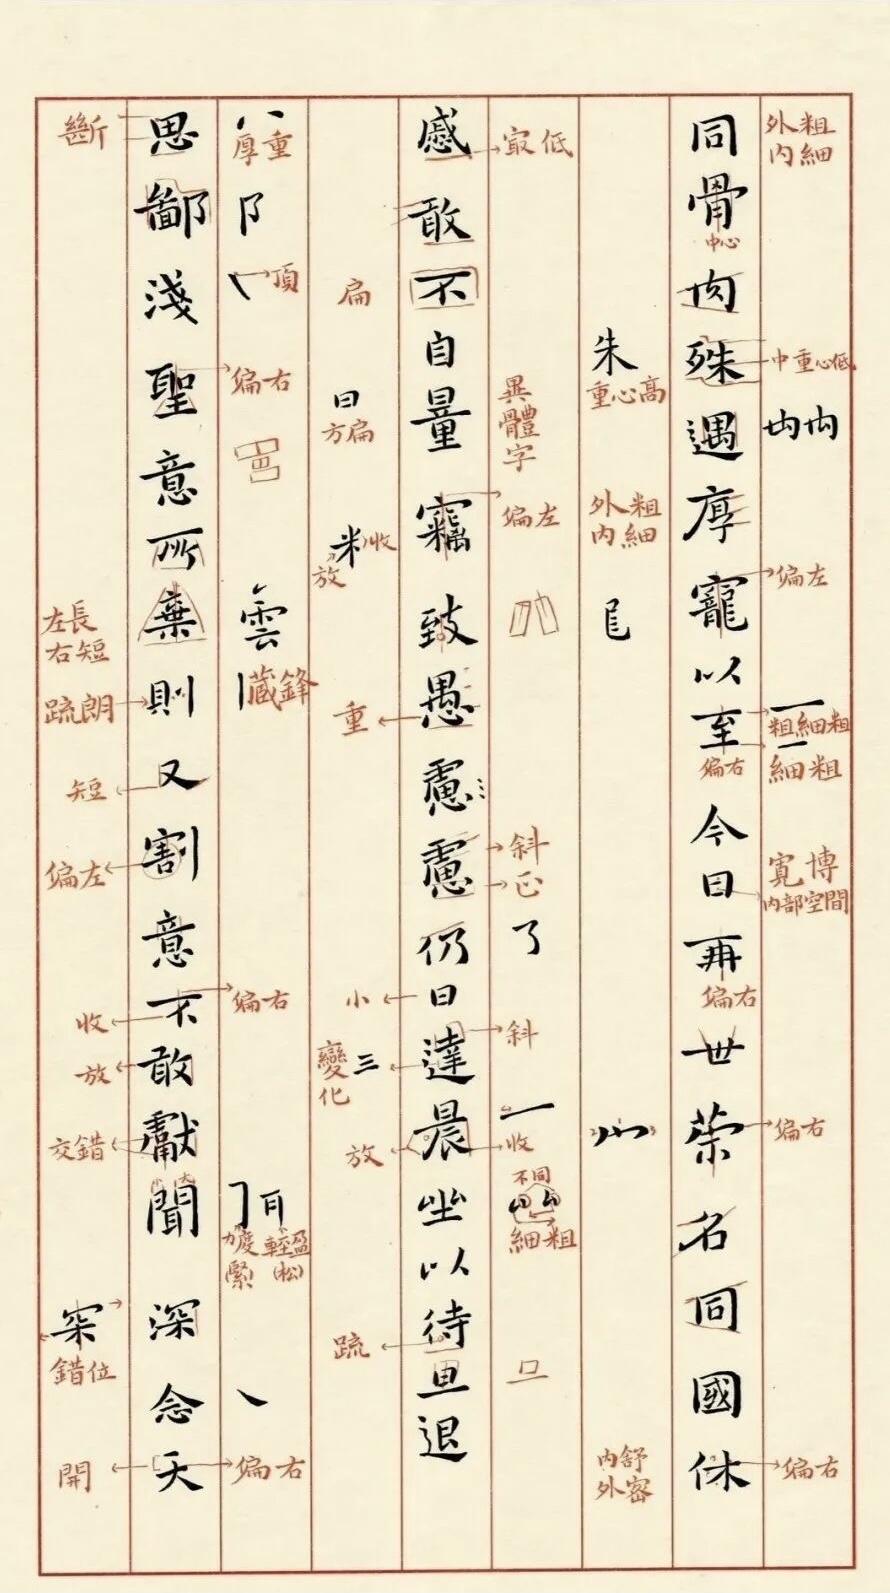 外粗
内細
同骨肉殊遇厚寵以至今日再世榮名同國休
中心
中重心低
偏左
粗細粗
細粗
偏右
寬博
内部空間
偏右
偏右
偏右
朱
重心高
外粗
内細
内舒
外密
最低
異體字
偏左
斜
正
了
斜
一
收
不同
細粗
慼敢不自量竊致愚慮慮仍日達晨坐以待旦退
扁
日
方扁
米
收
放
重
小
變化
三
放
疏
八
厚重
阝
頂
偏右
雲
藏鋒
偏右
力度
緊
輕盈
(松)
偏右
思鄙淺聖意所棄則又割意不敢獻聞深念天
斷
左長
右短
疏朗
短
偏左
收
放
交錯
罙
錯位
開